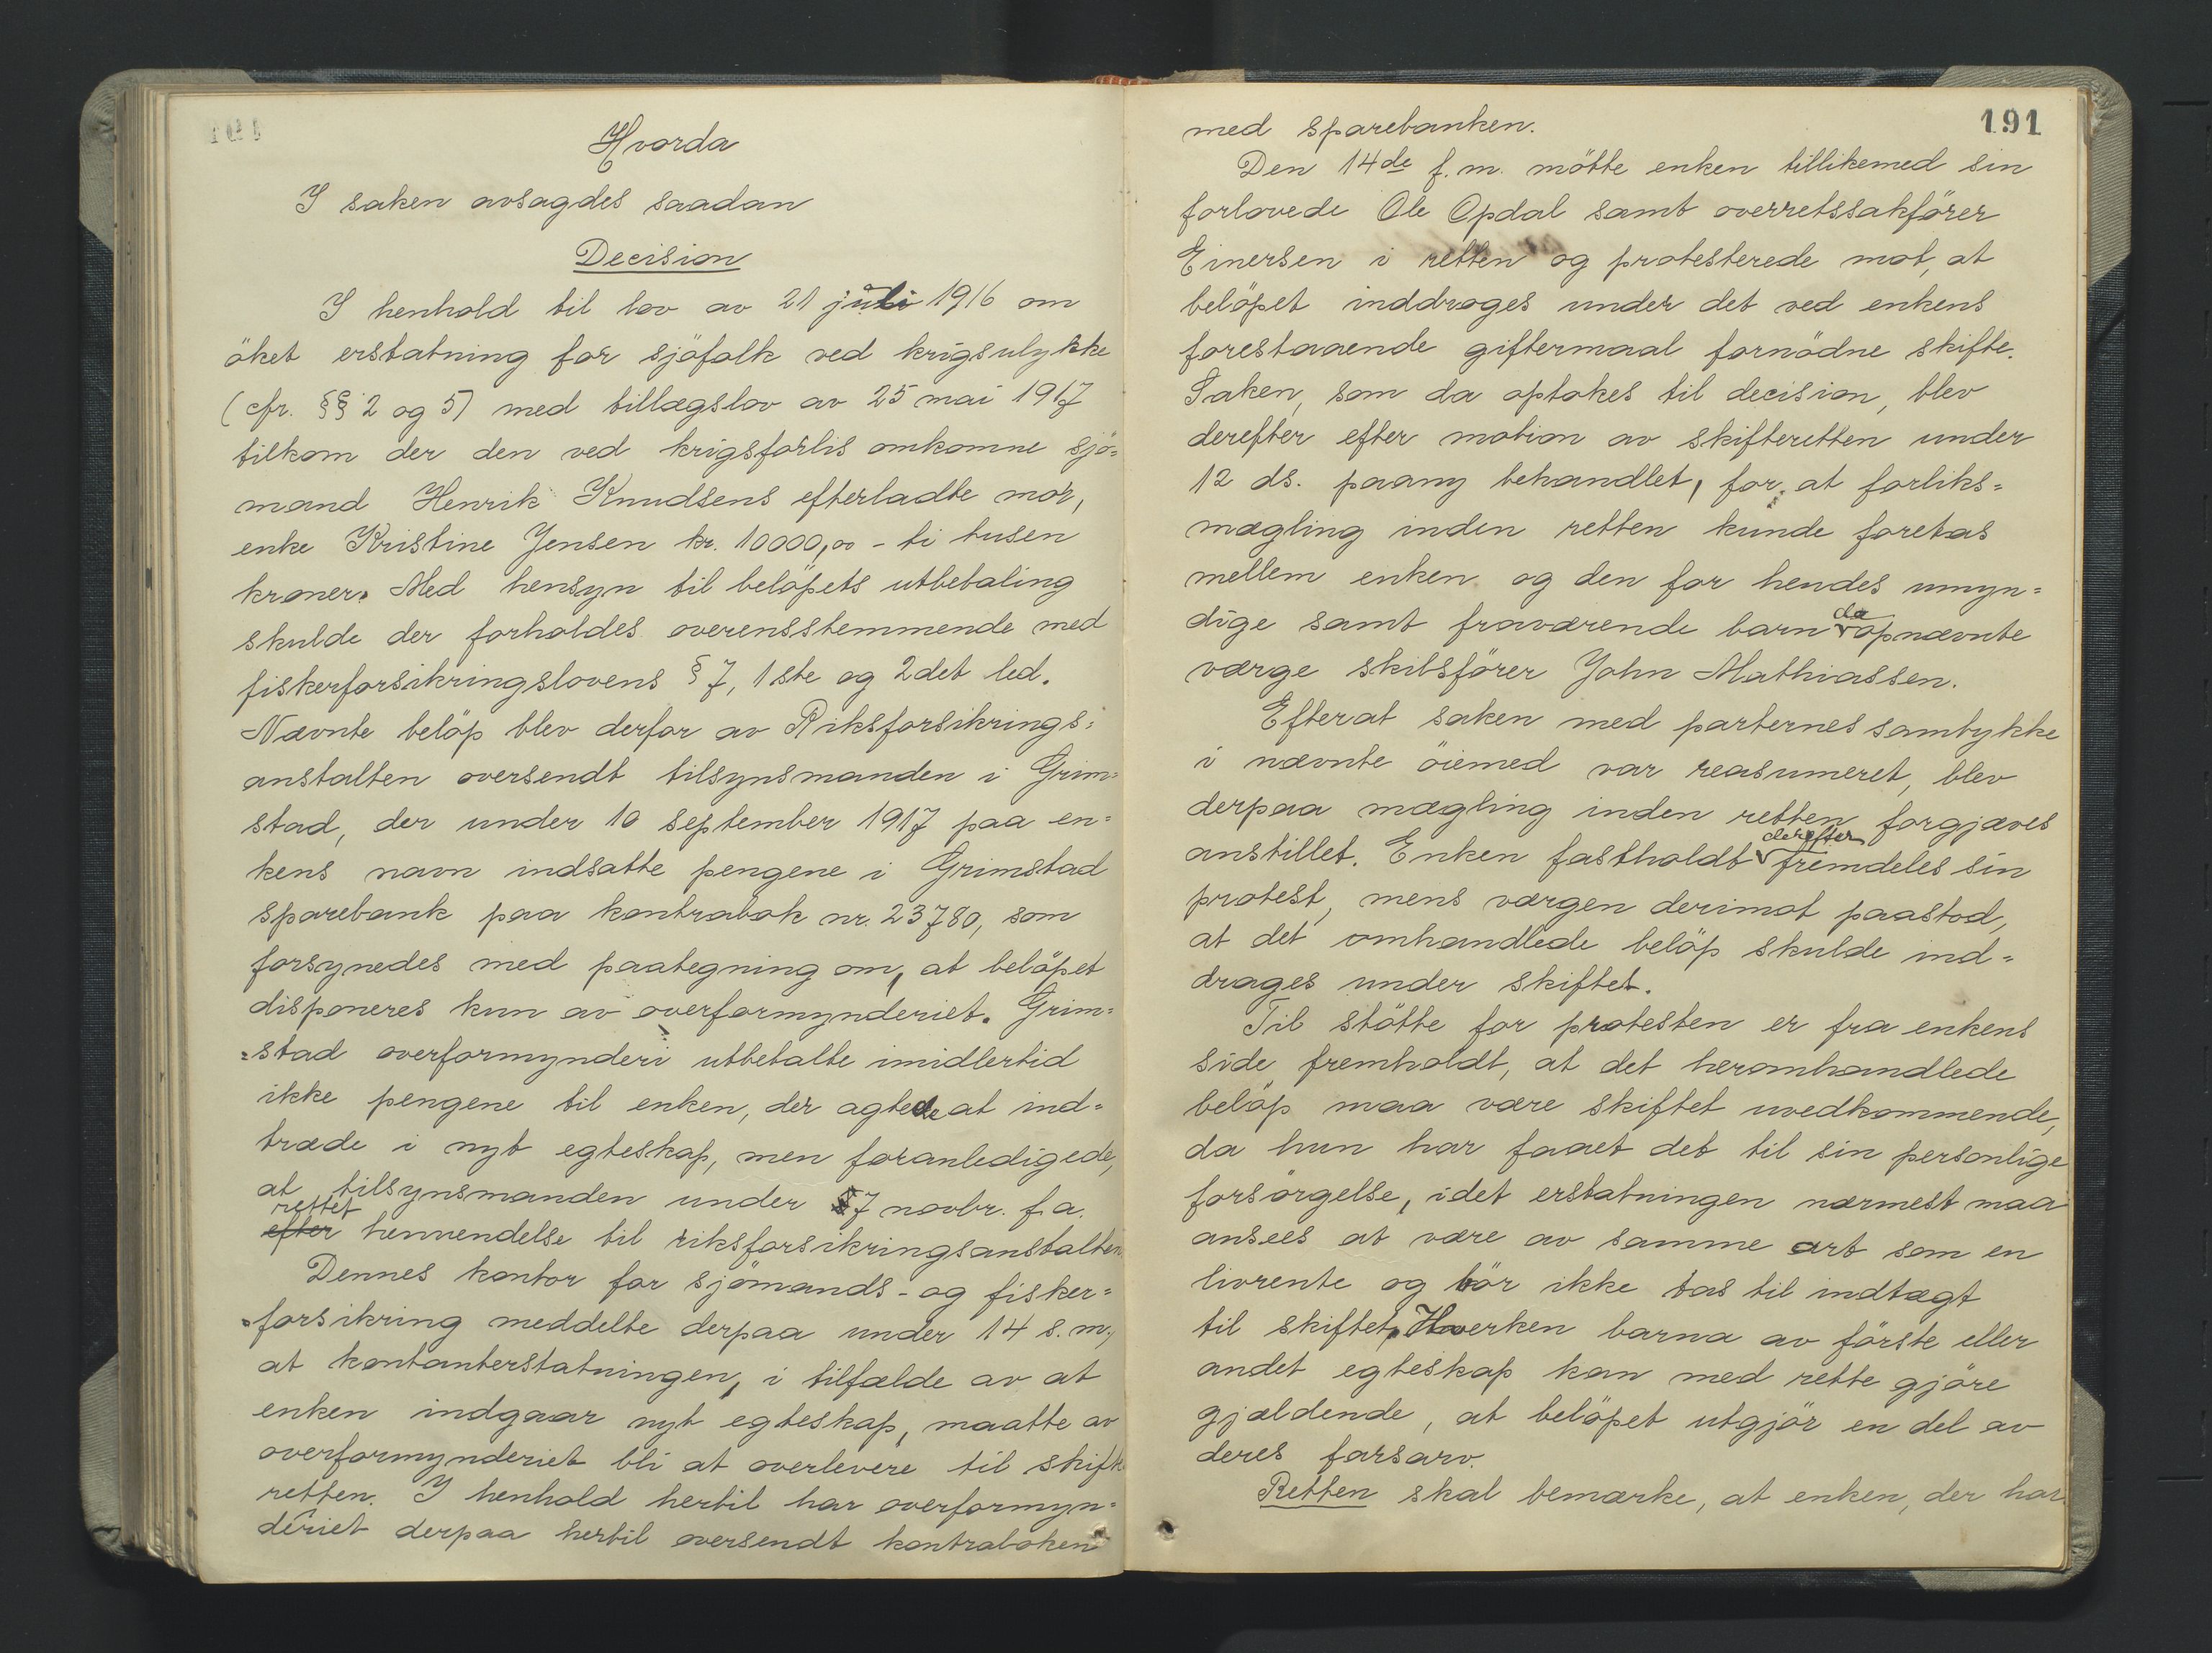 Hvorda
I saken avsagdes saadan
Decision
I henhold til lov av 21 juli 1916 om
öket erstatning for sjöfolk ved krigsulykke
(cfr. §§ 2 og 5) med tillægslov av 25 mai 1917
tilkom der den ved krigsforlis omkomne sjö=
mand Henrik Knudsens efterladte mor,
enke Kristine Jensen kr. 10000,00 - ti tusen
kroner. Med hensyn til belöpets utbetaling
skulde der forholdes overensstemmende med
fiskerforsikringslovens § 7, 1ste og 2det led.
Nævnte belöp blev derfor av Riksforsikrings=
anstalten oversendt tilsynsmanden i Grim=
stad, der under 10 september 1917 paa en=
kens navn indsatte pengene i Grimstad
sparebank paa kontrabok nr. 23780, som
forsynedes med paategning om, at belöpet
disponeres kun av overformynderiet. Grim=
=stad overformynderi utbetalte imidlertid
ikke pengene til enken, der agtede at ind=
træde i nyt egteskap, men foranledigede,
at tilsynsmanden under 7 novbr. f.a.
rettet
efter henvendelse til riksforsikringsanstalten
Dennes kontor for sjömands- og fisker=
forsikring meddelte derpaa under 14 s.m.,
at kontanterstatningen, i tilfælde av at
enken indgaar nyt egteskap, maatte av
overformynderiet bli at overlevere til skifte
retten. I henhold hertil har overformyn=
deriet derpaa hertil oversendt kontraboken
191
med sparebanken.
Den 14de f.m. mötte enken tillikemed sin
forlovede Ole Opdal samt overretssakförer
Einersen i retten og protesterede mot, at
belöpet inddrages under det ved enkens
forestaaende giftermaal fornödne skifte.
Saken, som da optokes til decision, blev
derefter efter motion av skifteretten under
12 ds. paany behandlet, for at forliks=
mægling inden retten kunde foretas
mellem enken og den for hendes umyn=
da
dige samt fraværende barn opnævnte
værge skibsförer John Mathiassen.
Efterat saken med parternes samtykke
i nævnte öiemed var reasumeret, blev
derpaa mægling inden retten forgjæves
derefter
anstillet. Enken fastholdt fremdeles sin
protest, mens værgen derimot paastod,
at det omhandlede belöp skulde ind=
drages under skiftet.
Til stötte for protesten er fra enkens
side fremholdt, at det heromhandlede
belöp maa være skiftet uvedkommende,
da hun har faaet det til sin personlige
forsörgelse, idet erstatningen nærmest maa
ansees at være av samme art som en
livrente og bör ikke tas til indtægt
til skiftet. Hverken barna av förste eller
andet egteskap kan med rette gjöre
gjældende, at belöpet utgjör en del av
deres farsarv.
Retten skal bemærke, at enken, der har